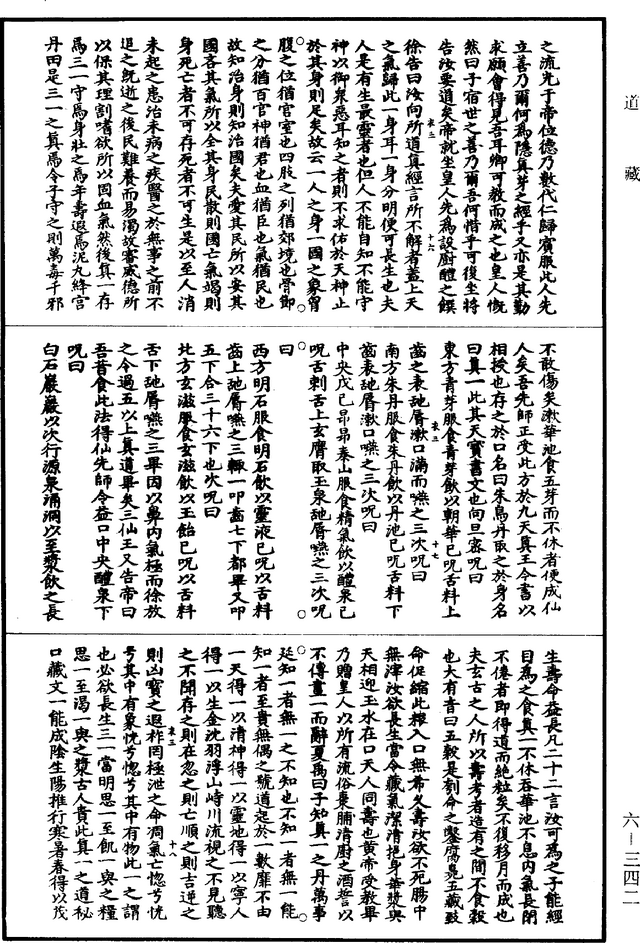 道藏
之流先于帝位德乃數代仁歸賓服此人先
立善乃爾何為隱真身之經乎又亦是其勤
求願會得見吾耳卿可教而成之也皇人慨
然曰子宿世之善乃爾吾何惜乎可後坐將
告汝要道矣帝就坐皇人先為設廚醴之饌
衣三 十六
徐告曰汝向所道真經言所不解者蓋上天
之氣歸此一身耳一身分明便可長生也夫
人是有生最靈者也但人不能自知不能守
神以御衆惡耳知之者則不求佑於天神止
於其身則足矣故云一人之身一國之象胷
腹之位猶宮室也四肢之列猶郊境也骨節
之分猶百官神猶君也血猶臣也氣猶民也
故知治身則知治國矣夫愛其民所以安其
國吝其氣所以全其身民散則國亡氣竭則
身死亡者不可存死者不可生是以至人消
未起之患治未病之疾醫之於無事之前不
追之既逝之後民難養而易濁故審威德所
以保其理割嗜欲所以固血氣然後真一存
焉三一守焉身壯之焉年壽遐焉泥丸絳宮
丹田是三一之真焉令子守之則萬毒千邪
不敢傷矣漱華池食五芽而不休者便成仙
人矣吾先師正受此方於九天真王令書以
相授也存之於口名曰朱鳥丹取之於身名
曰真一此其天寶書文也向旦密呪曰
東方青芽服食青芽飲以朝華已呪舌料上
衣三 十七
齒之表䑛脣漱口滿而嚥之三次呪曰
南方朱丹服食朱丹飲以丹池已呪舌料下
齒表䑛脣漱口嚥之三次呪曰
中央戊己昂昂泰山服食精氣飲以醴泉已
呪舌刺舌上玄膺取玉泉䑛脣嚥之三次呪
曰
西方明石服食明石飲以靈液已呪以舌料
齒上䑛脣嚥之三輙一叩齒七下都畢又叩
五下合三十六下也次呪曰
北方玄滋服食玄滋飲以玉飴已呪以舌料
舌下䑛脣嚥之三畢因以鼻內氣極而徐放
之令過五以上真道畢矣三仙王又告帝曰
吾昔食此法得仙先師令益口中央醴泉下
呪曰
白石巖巖以次行源泉涌洞以至漿飲之長
生壽命益長凡二十二言汝可為之子能經
目為之食真一不休吞華池不息內氣長閉
不倦者即得道而絕粒矣不復移月而成也
夫玄古之人所以壽考者造有之間不食穀
也大有音曰五穀是刳命之鑿腐臭五藏致
命促縮此糧入口無希久壽汝欲不死腸中
無滓汝欲長生當令藏氣潔清挹身華漿與
天相迎玉水在口天人同壽也黃帝受教畢
乃贈皇人以所有流俗棗脯清廚之酒誓以
不傳盡一而辭夏禹曰子知真一之丹萬事
延知一者無一之不知也不知一者無一能
知一者至貴無偶之號道起於一數靡不由
一天得一以清神得一以靈地得一以寧人
得一以生金沉羽浮山峙川流視之不見聽
之不聞存之則在忽之則亡順之則吉逆之
衣三 十八
則凶寶之遐祚罔極泄之命凋氣亡惚兮恍
兮其中有象恍兮惚兮其中有物此一之謂
也必欲長生三一當明思一至飢一與之糧
思一至渴一與之漿古人貴此真一之道秘
口藏文一能成陰生陽推行寒暑春得以茂
六—三四二